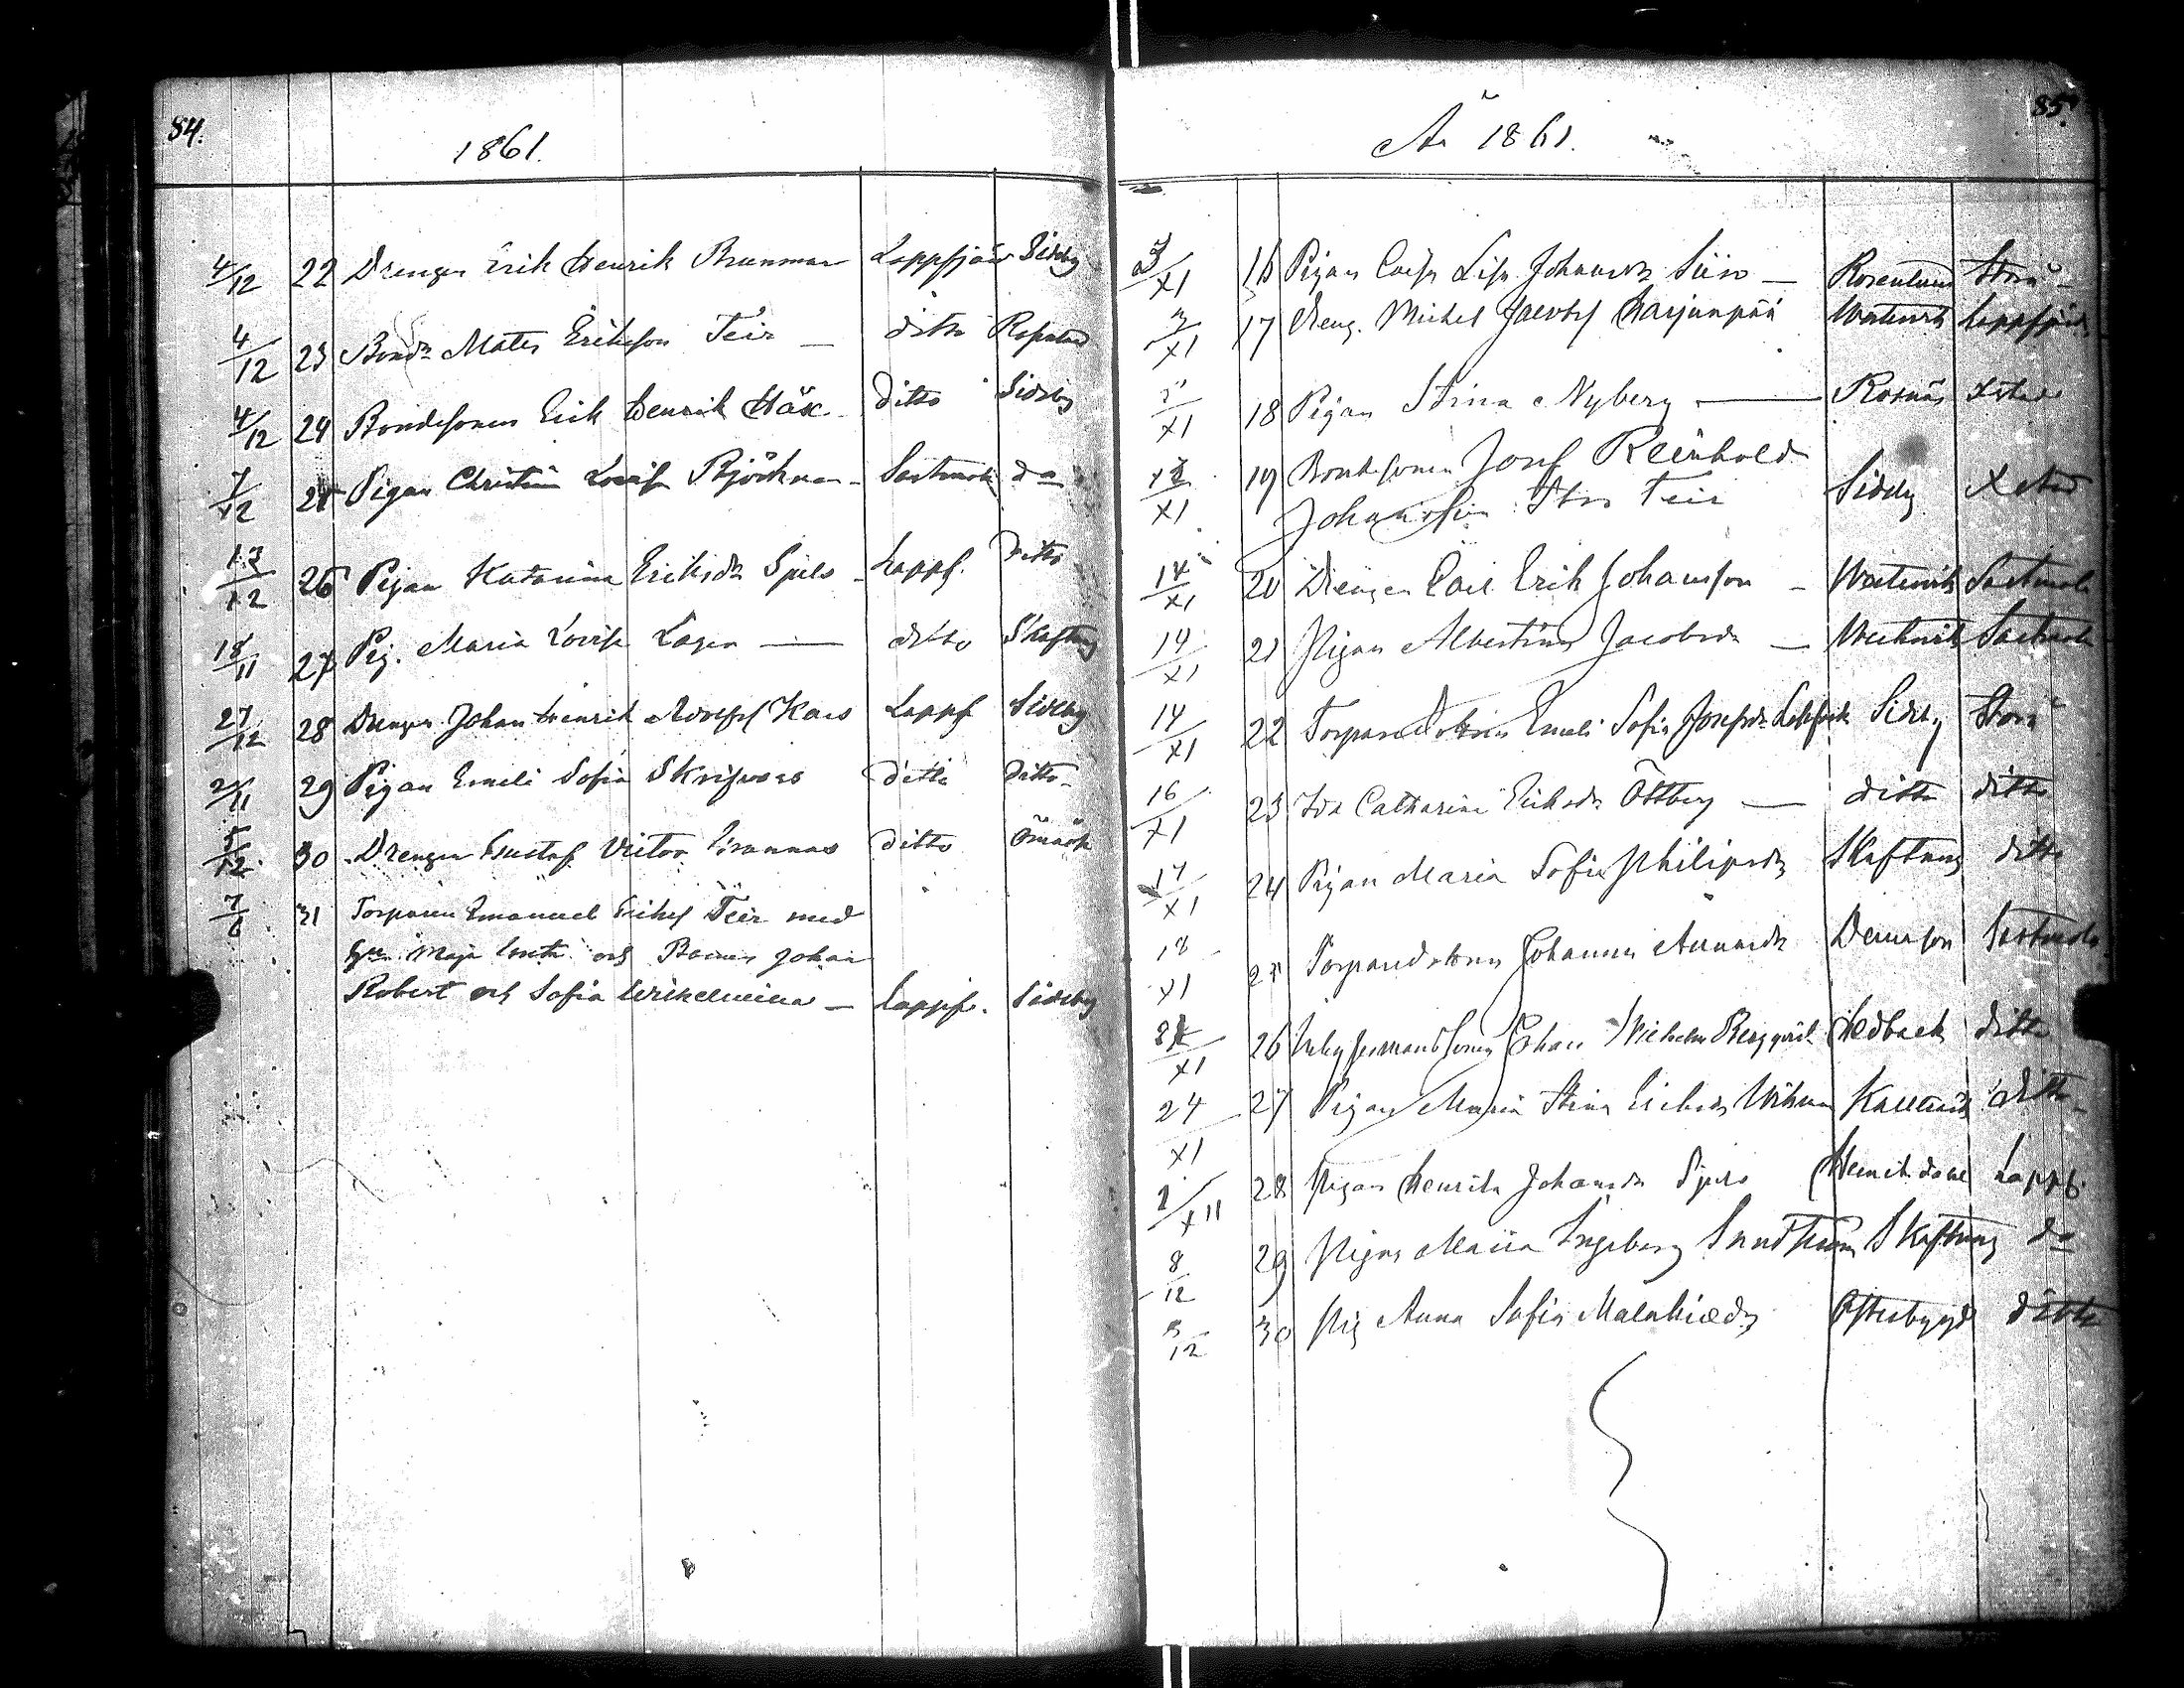 84.
1861.
4/12 22 Drengen Erik Henrik Brunman Lappfjärd Sideby
4/12 23 Bond. Mats Erikson Teir — ditto
4/12 24 Bondesonen Erik Henrik ditto Sideby
7/12 25 Pigan Christin Lovisa Björkman - Sastmola do
13/12 26 Pigan Katarina Eriksdr Spels - Lappf. ditto
18/11 27 Pig. Maria Lovisa Lager — ditto Skaftung
27/12 28 Drengen Johan Henrik Adolfs Kars Lappf Sideby
29 Pigan Emeli Sofia Skrifvars ditto ditto
5/12 30 Drengen Gustaf Victor Grannas ditto Ömossa
7/6 31 Torparen Emanuel Erikss Teir med
Maja Greta och Barnen Johan
Robert och Sofia Wilhelmina — Lappf. Sideby
85.
År 1861.
3/XI 16 Pigan Cajsa Lisa Johansdr — Rosenlund Storå
3/XI 17 Dreng. Michel Jacobss Harjunpää Lappfjärd
/XI 18 Pigan Stina Nyberg — Kosnäs
/XI 19 Bondesonen Josef Reinhold
Johansson Stor Teir Sideby
14/XI 20 Drengen Carl Erik Johansson - Sastmola
14/XI 21 Pigan Albertina Jacobsdr — Sastmola
14/XI 22 Torparedottren Emeli Sofia Josefsdr Sideby Storå
16/XI 23 Ida Catharina Eriksdr Östberg — ditto ditto
17/XI 24 Pigan Maria Sofia Philipsdr Skaftung ditto
18/XI 25 Torparedottren Johanna Sastmola
/XI 26 Inhysesmansonen Johan Wilhelm Bergqvist Hedback ditto
24/XI 27 Pigan Maria Stina Eriksdr ditto
/XII 28 Pigan Henrika Johansdr Spels Henriksdal Lappf.
8/12 29 Pigan Maria Ingeborg Sundström Skaftung do
/12 30 Pig Anna Sofia Malakiedr Ofterbygd ditto